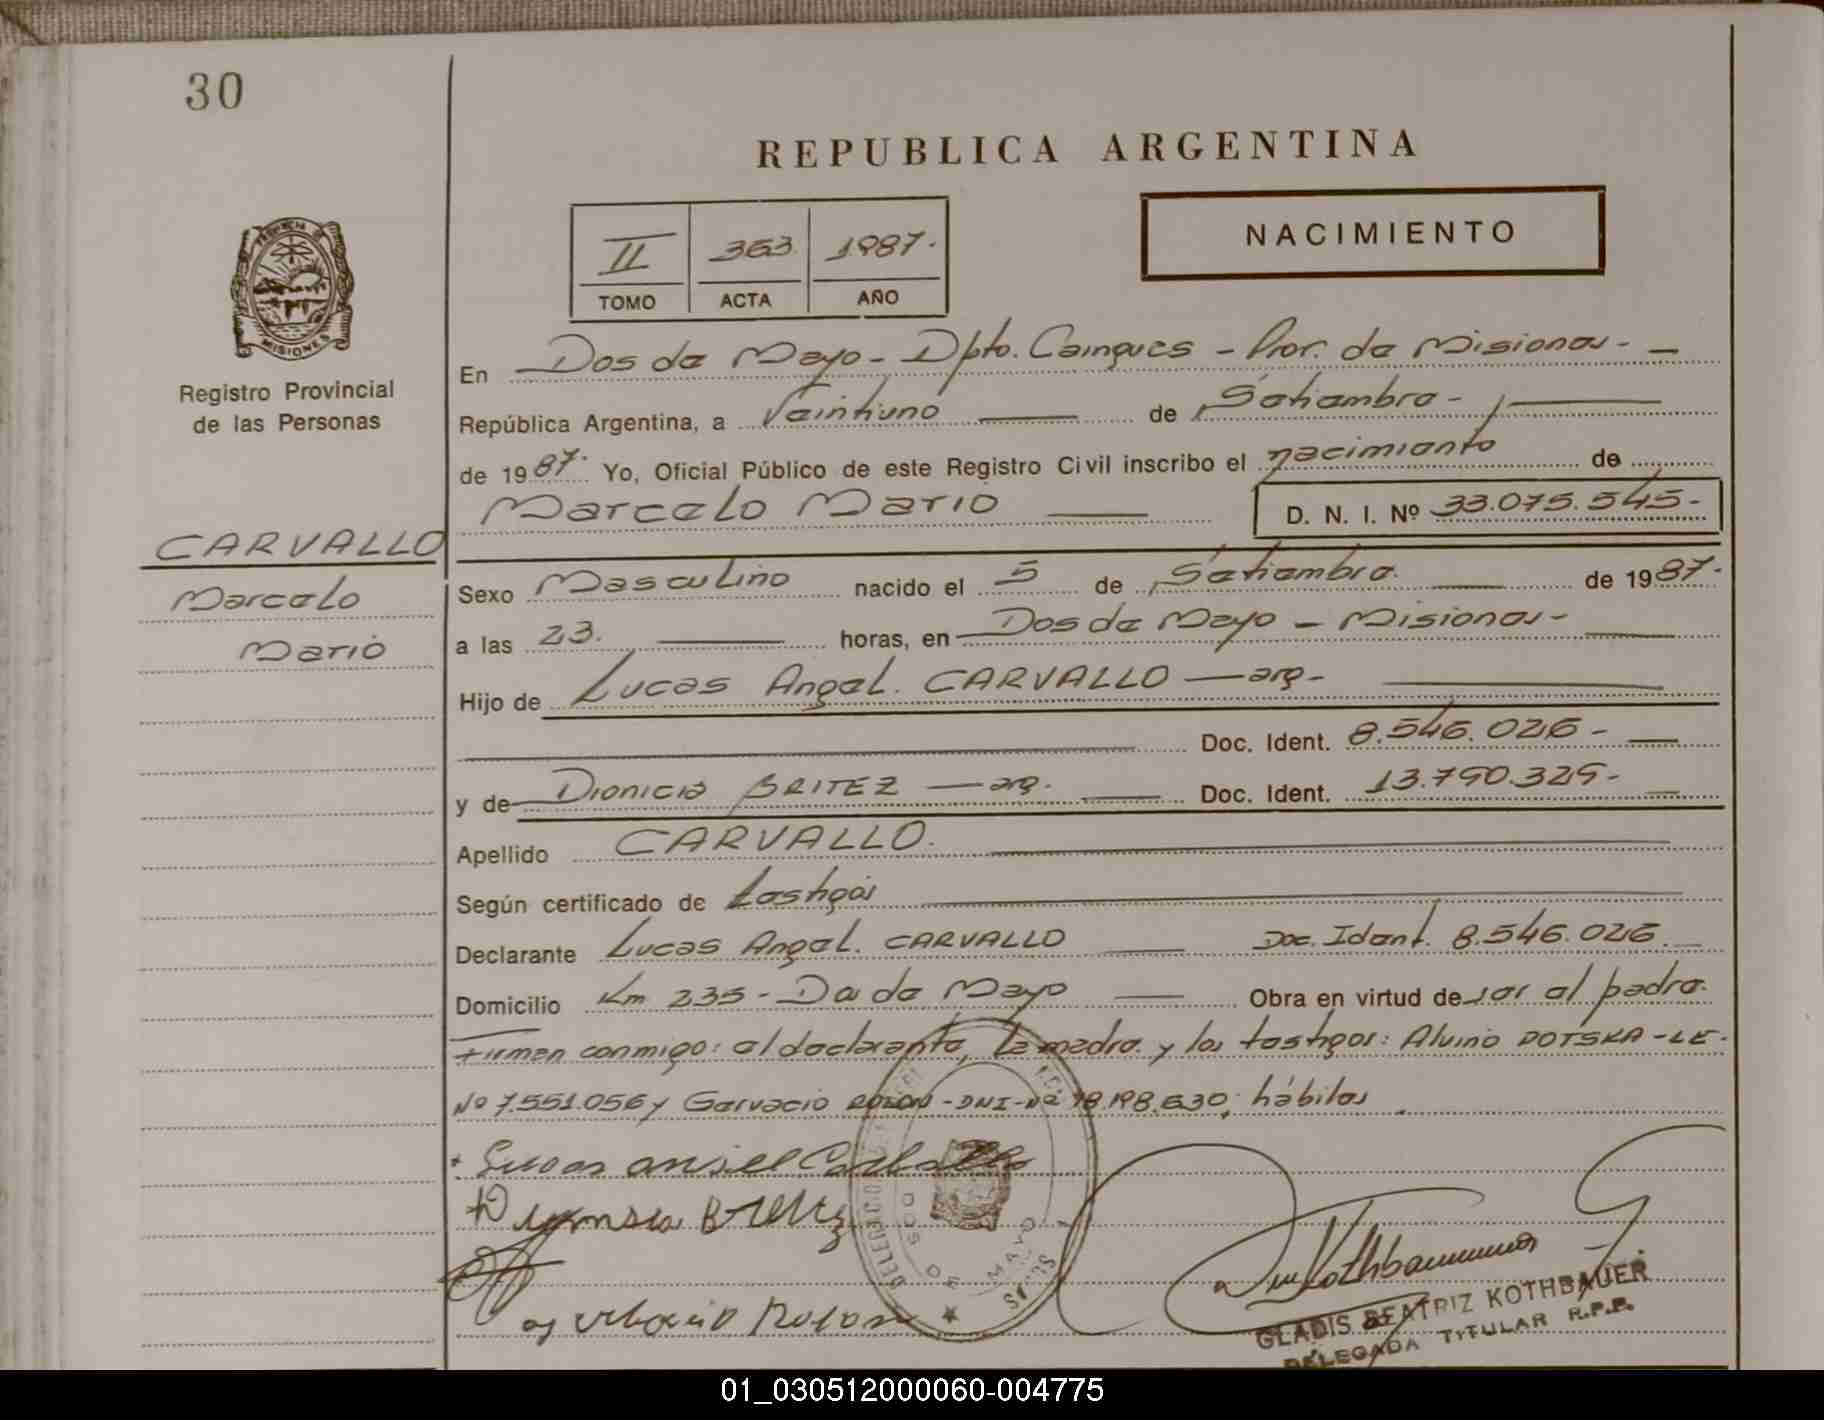 30
REPUBLICA ARGENTINA
II 363 1987.
TOMO ACTA AÑO
NACIMIENTO
PROVINCIA DE
MISIONES
Registro Provincial
de las Personas
En Dos de Mayo - Dpto. Cainguas - Prov. de Misiones -
República Argentina, a Veintiuno de Setiembre -
de 1987. Yo, Oficial Público de este Registro Civil inscribo el nacimiento de
Marcelo Mario D. N. I. Nº 33.075.545-
CARVALLO
Marcelo
Mario
Sexo Masculino nacido el 5 de Setiembre. de 1987.
a las 23. horas, en Dos de Mayo - Misiones -
Hijo de Lucas Angel. CARVALLO - arg -
Doc. Ident. 8.546.026 -
y de Dionicia BRITEZ - arg. Doc. Ident. 13.790.329-
Apellido CARVALLO.
Según certificado de testigos
Declarante Lucas Angel. CARVALLO Doc. Ident. 8.546.026.
Domicilio Km 235 - Dos de Mayo Obra en virtud de ser el padre.
Firman conmigo: el declarante, la madre y los testigos: Alvino DOTSKA - LE -
Nº 7.551.056 y Gervacio ROLON - DNI - Nº 18.198.630; hábiles
DOS DE MAYO
GLADIS BEATRIZ KOTHBAUER
DELEGADA TITULAR R.P.P.
01_030512000060-004775